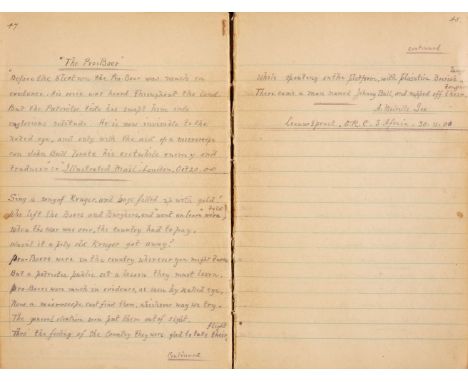 47.
"The Pro-Boer"
"Before the Election the Pro-Boer was much in
evidence. His voice was heard throughout the land.
But the Patriotic tide has swept him into
inglorious solitude. He is now invisible to the
naked eye, and only with the aid of a microscope
can John Bull locate his erstwhile enemy and
traducer." in "Illustrated Mail" London, Oct 20. 00
Sing a song of Kruger, and bags filled up with gold!
Who left the Boers and Burghers, and "went on leave"
When the war was over, the country had to pay.
Wasn't it a pity old Kruger got away?
Pro-Boers were in the country wherever you might turn
But a patriotic public set a lesson they must learn.
Pro-Boers were much in evidence, as seen by naked eye,
Now a microscope can't find them, whichever way we try.
The general election soon put them out of sight.
Thro' the feeling of the Country they were glad to take their flight
Continued
48.
continued
While spouting on the Platform, with
There came a man named Johnny Bull, and nipped off their tongues
A. Melville
O.R.C. S. Africa. 30.11.00